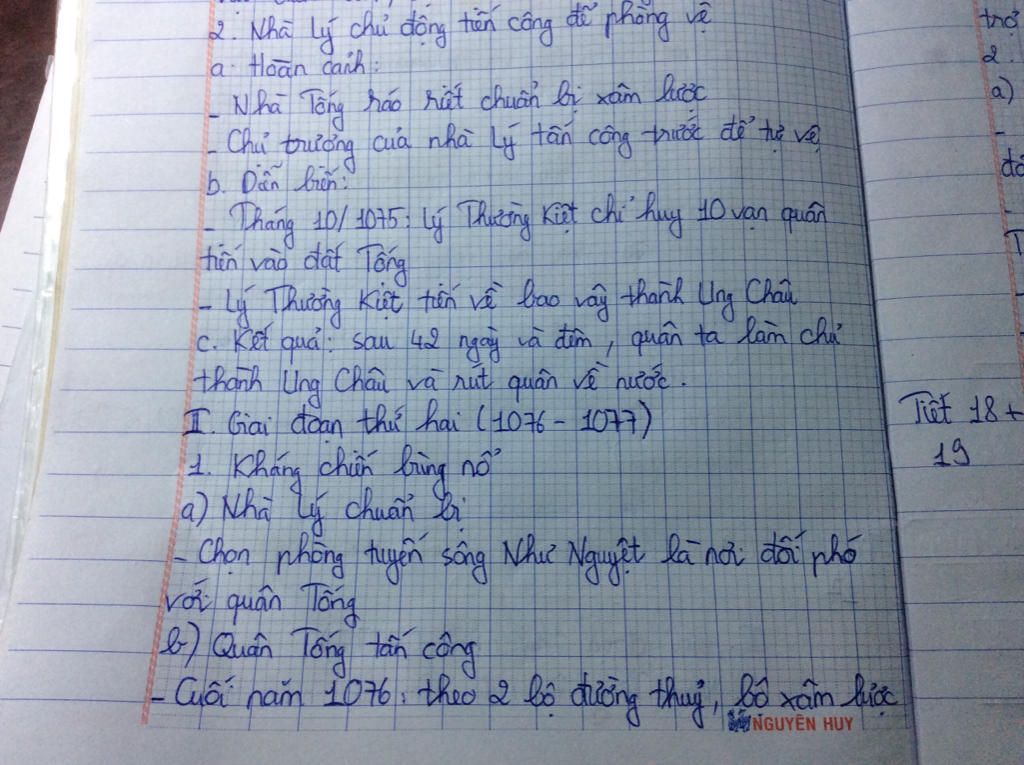 2. Nhà Lý chủ động tiến công để phòng vệ
a. Hoàn cảnh:
- Nhà Tống ráo riết chuẩn bị xâm lược
- Chủ trương của nhà Lý tấn công trước để tự vệ
b. Diễn biến:
- Tháng 10/1075: Lý Thường Kiệt chỉ huy 10 vạn quân
tiến vào đất Tống
- Lý Thường Kiệt tiến về bao vây thành Ung Châu
c. Kết quả: sau 42 ngày và đêm, quân ta làm chủ
thành Ung Châu và rút quân về nước.
II. Giai đoạn thứ hai (1076 - 1077)
1. Kháng chiến bùng nổ
a) Nhà Lý chuẩn bị
- Chọn phòng tuyến sông Như Nguyệt là nơi đối phó
với quân Tống
b) Quân Tống tấn công
- Cuối năm 1076: theo 2 bộ đường thuỷ, bộ xâm lược
NGUYÊN HUY
trợ
2.
a)
-
Tiết 18 +
19